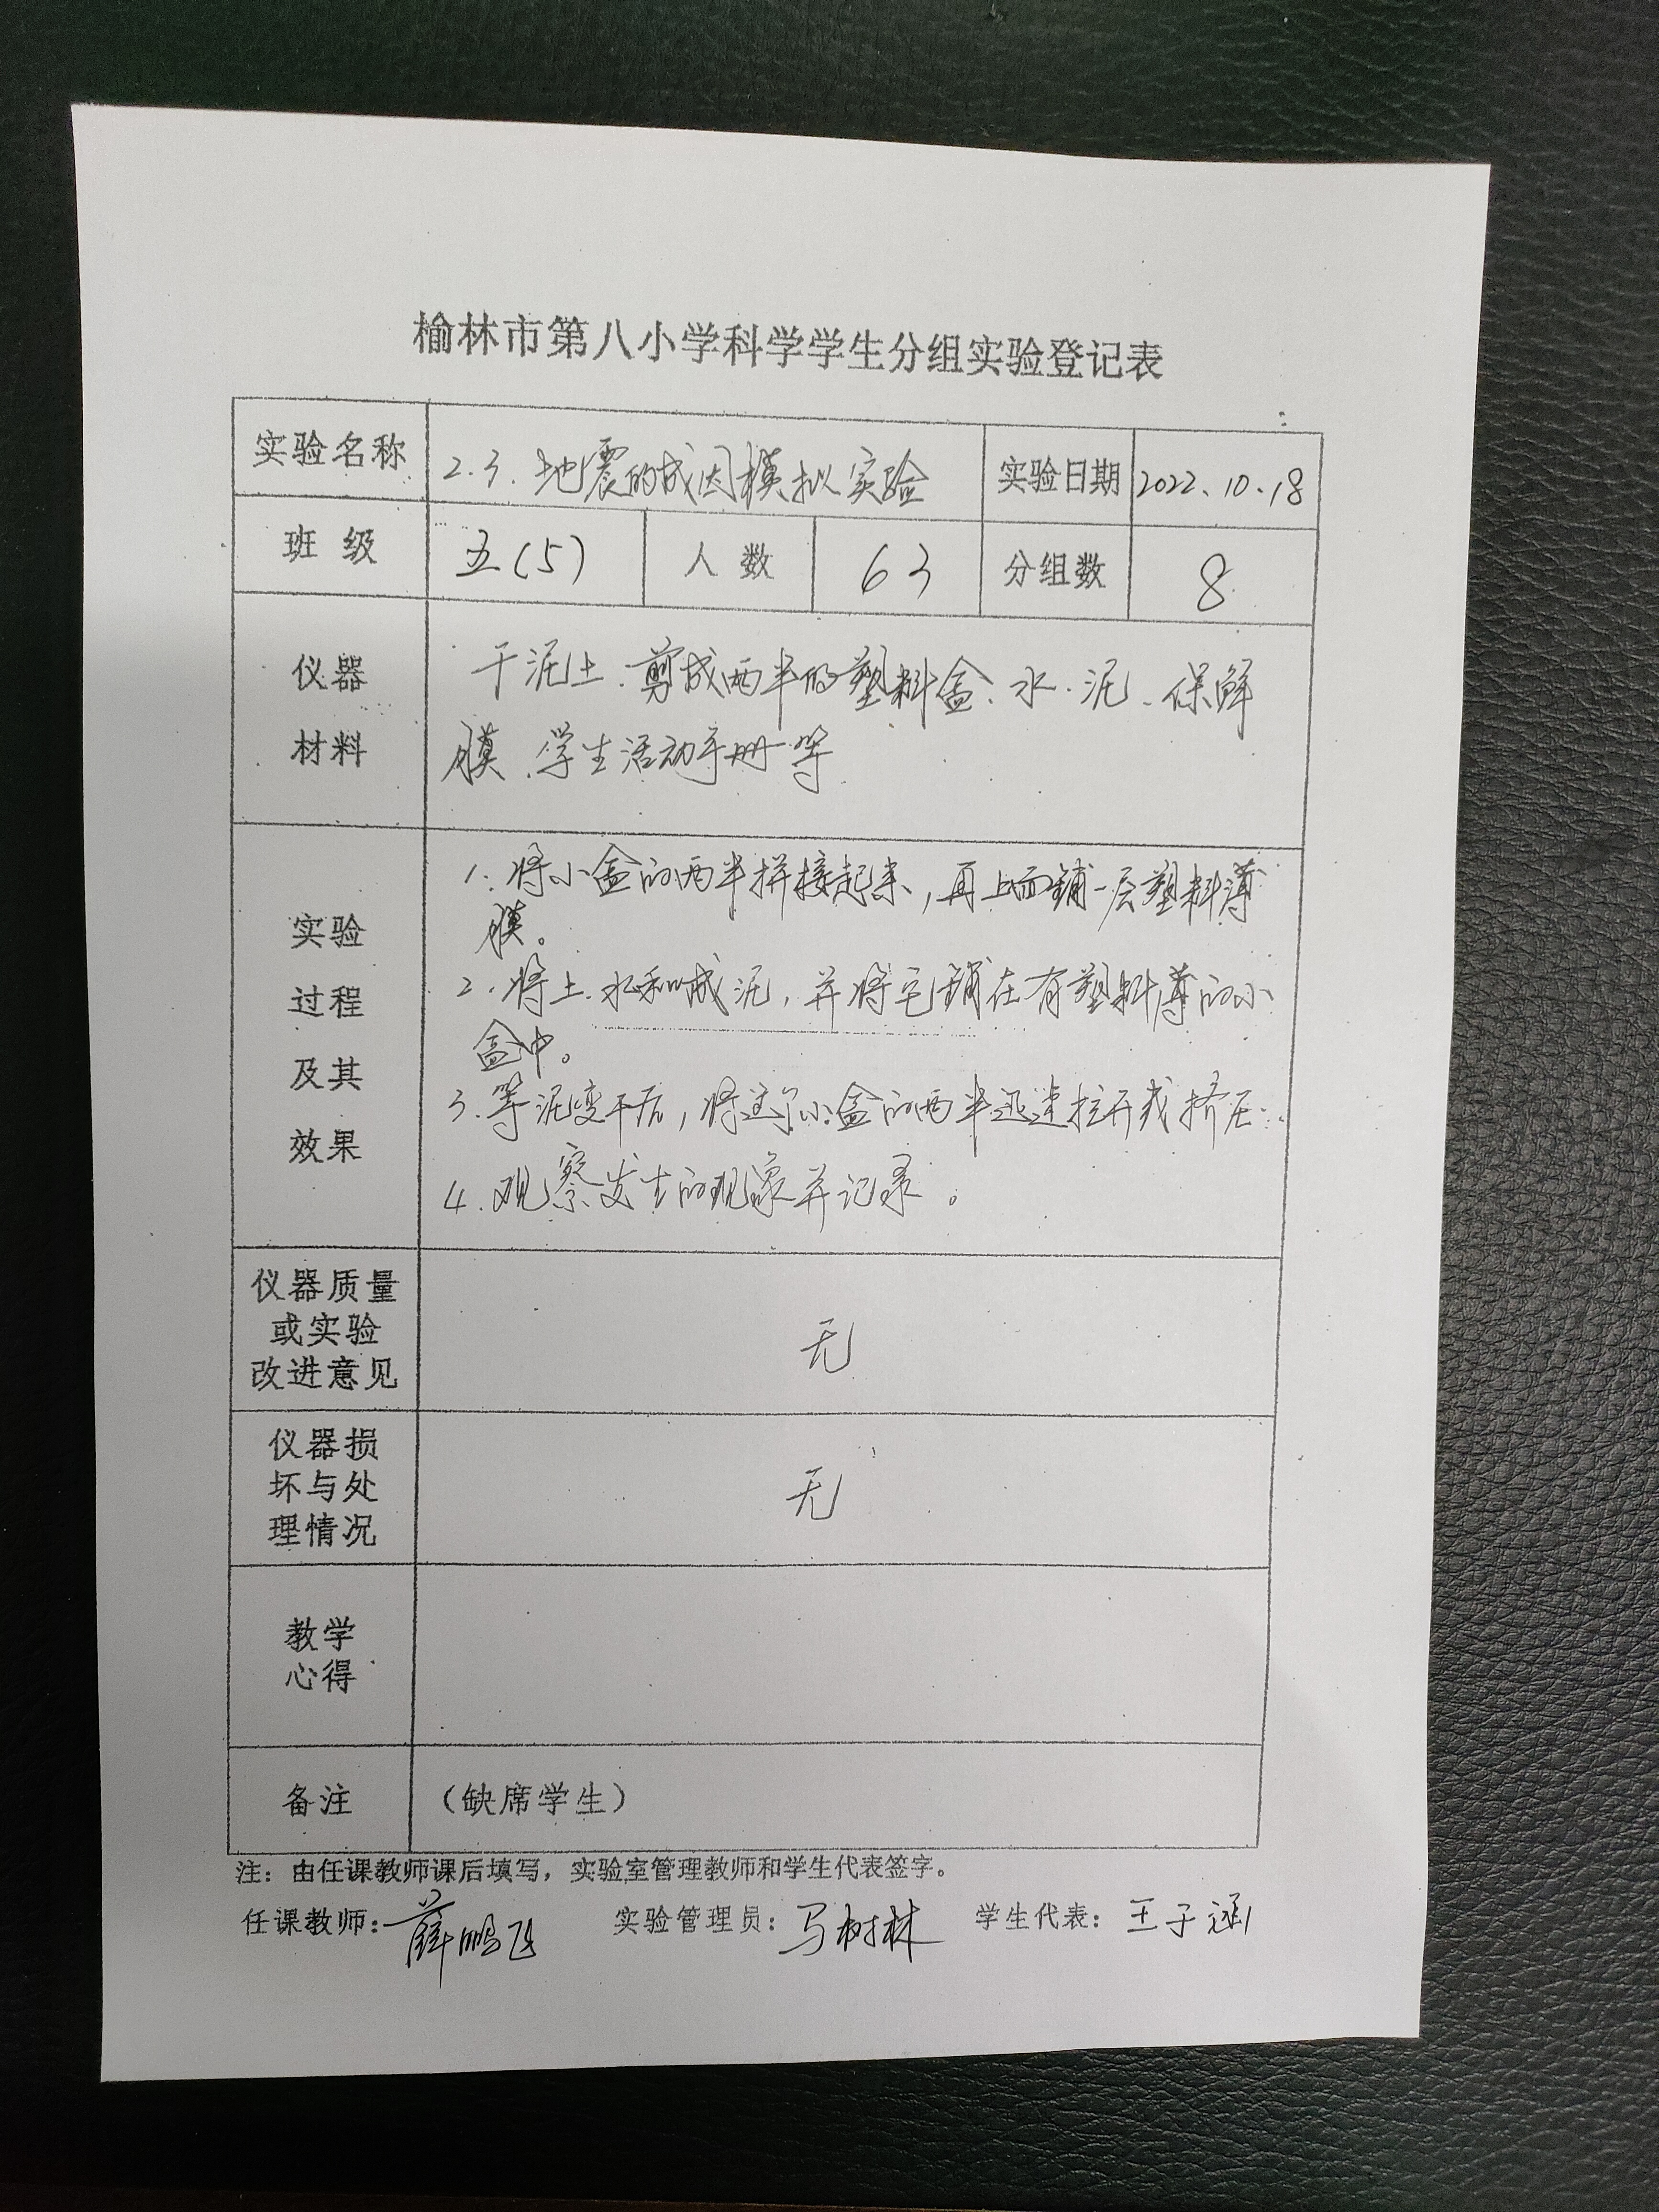 榆林市第八小学科学学生分组实验登记表
实验名称 2.3.地震的成因模拟实验 实验日期 2022.10.18
班 级 五(5) 人 数 63 分组数 8
仪器
材料
干泥土、剪成两半的塑料盒、水、泥、保鲜
膜、学生活动手册等
实验
过程
及其
效果
1.将小盒的两半拼接起来,再上面铺一层塑料薄
膜。
2.将土、水和成泥,并将它铺在有塑料薄的小
盒中。
3.等泥变干后,将这个小盒的两半迅速拉开或挤压
4.观察发生的现象并记录。
仪器质量
或实验
改进意见
无
仪器损
坏与处
理情况
无
教学
心得
备注 (缺席学生)
注:由任课教师课后填写,实验室管理教师和学生代表签字。
任课教师:薛鹏飞 实验管理员:马树林 学生代表:王子涵